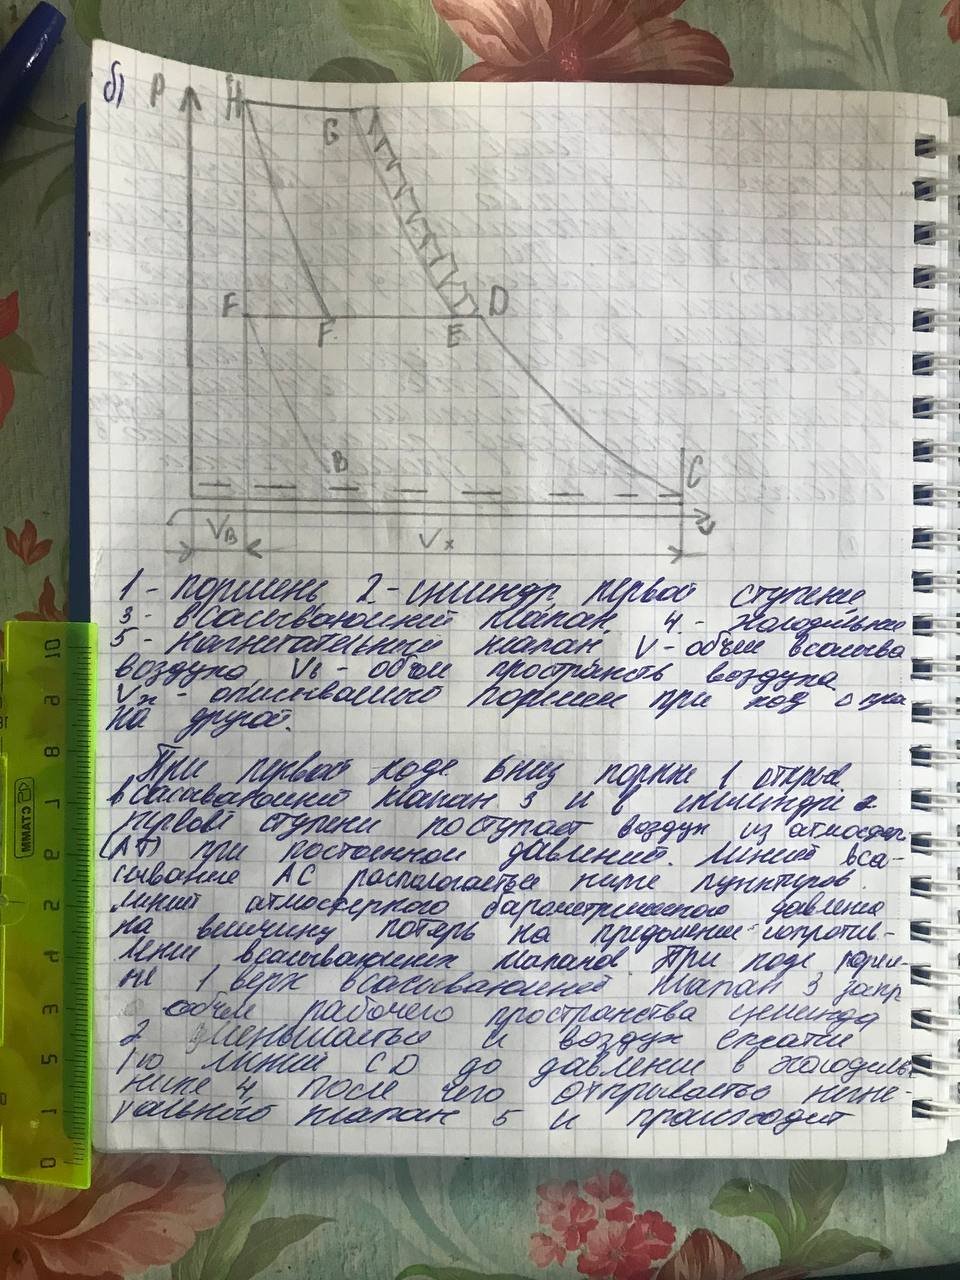 б) P H
G
F F E D
B C
Vв Vx v
1 - поршень 2 - цилиндр первой ступени
3 - всасывающий клапан 4 - холодильник
5 - нагнитательний клапан V - объем всасыва
воздуха Vв - объем пространств воздуха
Vx - описываемый поршнем при ход
на другой.
При первой ходе вниз поршн 1 открыв
всасывающий клапан 3 и в цилиндр 2
первой ступени поступает воздух из атмосфер
(АТ) при постоенной давлений. Линий вса-
сывание АС распологаеться ниже пунктиров
линий атмосферного барометрического давления
на величину потерь на придоление сопротив-
лений всасывающих клапанов При ходе порш-
не 1 верх всасывающий клапан 3 закр
объем рабочего пространства цилинда
2 уменьшаеться и воздух сжатие
по линий CD до давление в холодиль-
нике 4 после чего открываеться нагне-
тального клапан 5 и происходит
СТАММ
0 1 2 3 4 5 6 7 8 9 10